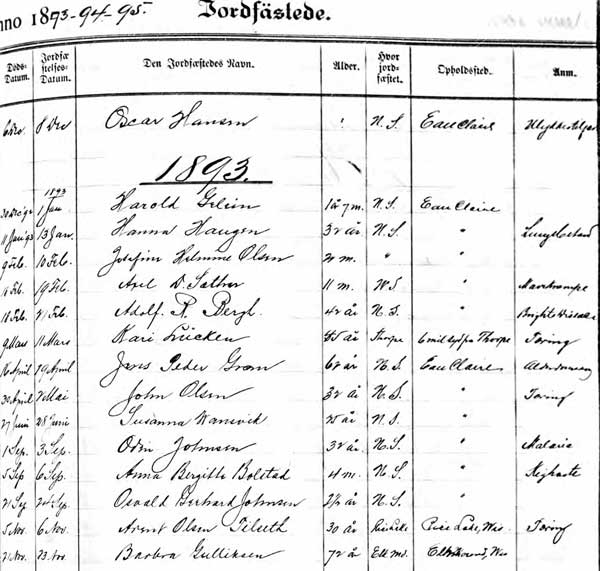 nno 1893-94-95. Jordfæstede.
Döds-Datum. Jordfæstelses-Datum. Den Jordfæstedes Navn. Alder. Hvor jordfæstet. Opholdssted. Anm.
8 Dec Oscar Hansen N. S. Eau Claire
1893.
1893
1 Jan Harold 1 år 7 m. N. S. Eau Claire
13 Jan. Hanna Haugen 32 år N. S "
9 Feb. 10 Feb. Josefine Helmine Olsen 2 m. " "
19 Feb. Axel D. Sather 11 m. "
18 Feb. 21 Feb. Adolf. R. Bergh. 42 år N. S. "
9 Mars 11 Mars Kari Lücken 45 år Thorpe Thorpe Tæring
16 April 19 April Jens Peder Gram 62 år N. S. Eau Claire
30 April 2 Mai John Olsen 32 år N. S. " Tæring
27 Juni 28 Juni Susanna 25 år N. S. "
1 Sep. 3 Sep. Odin Johnsen 32 år. N. S. " Malaria
5 Sep 6 Sep. Anna Bergitte Bolstad 4 m. N. S. "
21 Sep Sep. Osvald Gerhard Johnsen 2½ år N. S. "
5 Nov. 6 Nov. Arent Olsen Tilseth 30 år Rice Lake Rice Lake, Wis. Tæring
21 Nov. 23. Nov. Barbra Gulliksen 72 år Elk Md. Elk Mound, Wis